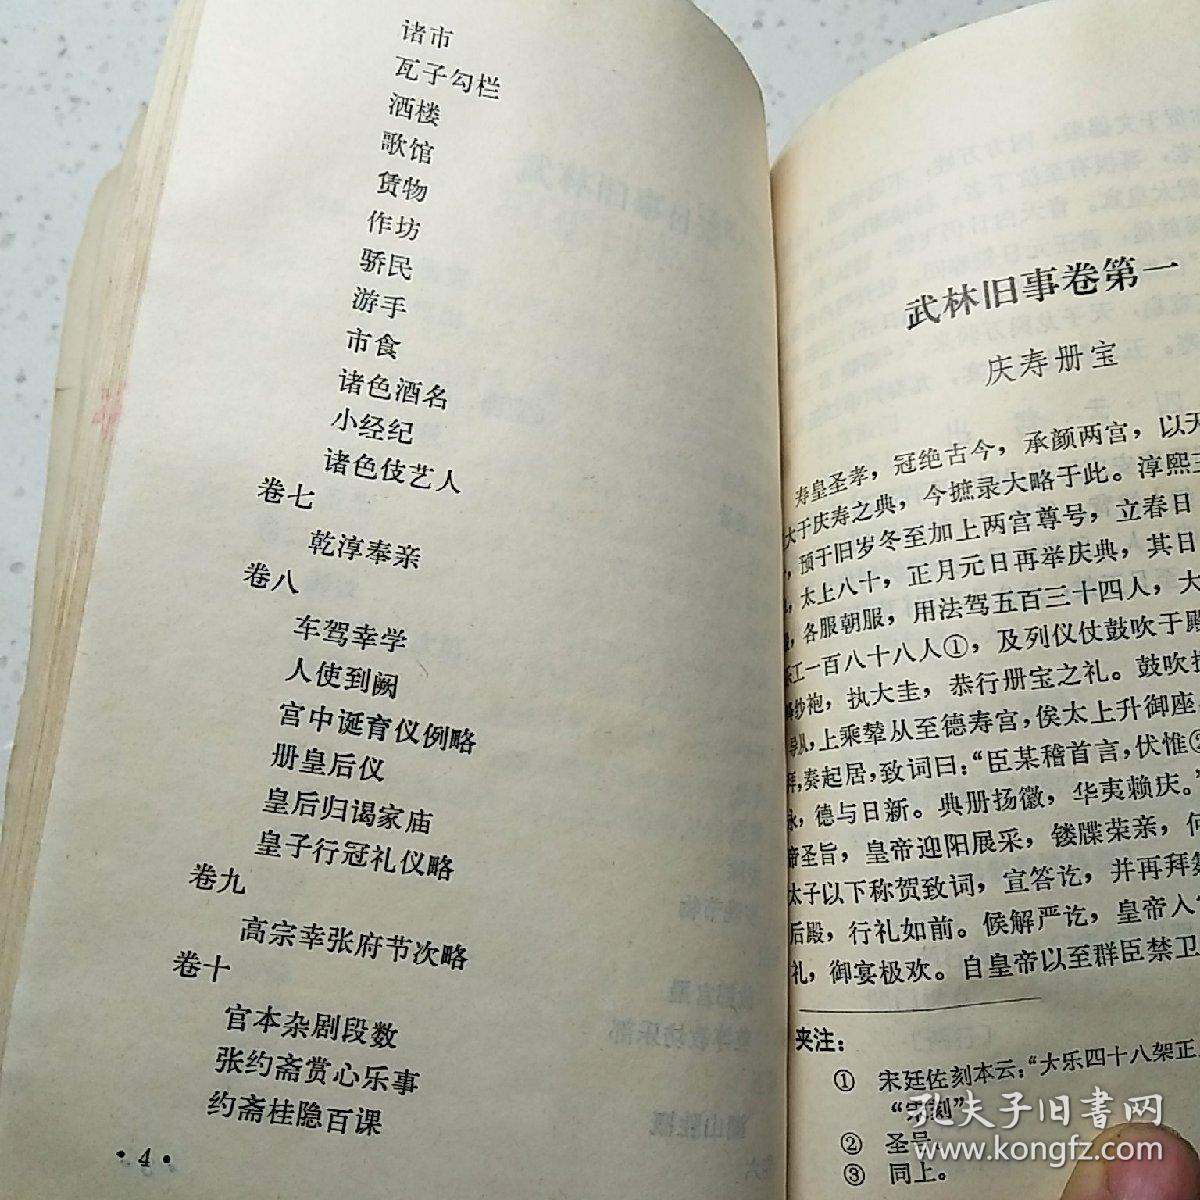 诸市
瓦子勾栏
洒楼
歌馆
赁物
作坊
骄民
游手
市食
诸色酒名
小经纪
诸色伎艺人
卷七
乾淳奉亲
卷八
车驾幸学
人使到阙
宫中诞育仪例略
册皇后仪
皇后归谒家庙
皇子行冠礼仪略
卷九
高宗幸张府节次略
卷十
官本杂剧段数
张约斋赏心乐事
约斋桂隐百课
·4·
武林旧事卷第一
庆寿册宝
寿皇圣孝，冠绝古今，承颜两宫，以天
大于庆寿之典，今摭录大略于此。淳熙
，预于旧岁冬至加上两宫尊号，立春日
，太上八十，正月元日再举庆典，其日
，各服朝服，用法驾五百三十四人，大
工一百八十八人①，及列仪仗鼓吹于殿
纱袍，执大圭，恭行册宝之礼。鼓吹
导从，上乘辇从至德寿宫，俟太上升御座
拜，奏起居，致词曰：“臣某稽首言，伏惟②
，德与日新。典册扬徽，华夷赖庆。”
帝圣旨，皇帝迎阳展采，镂牒荣亲，何
太子以下称贺致词，宣答讫，并再拜
后殿，行礼如前。候解严讫，皇帝入
礼，御宴极欢。自皇帝以至群臣禁卫
夹注：
① 宋廷佐刻本云：“大乐四十八架正
“宋刻”
② 圣号。
③ 同上。
孔夫子旧书网
www.kongfz.com